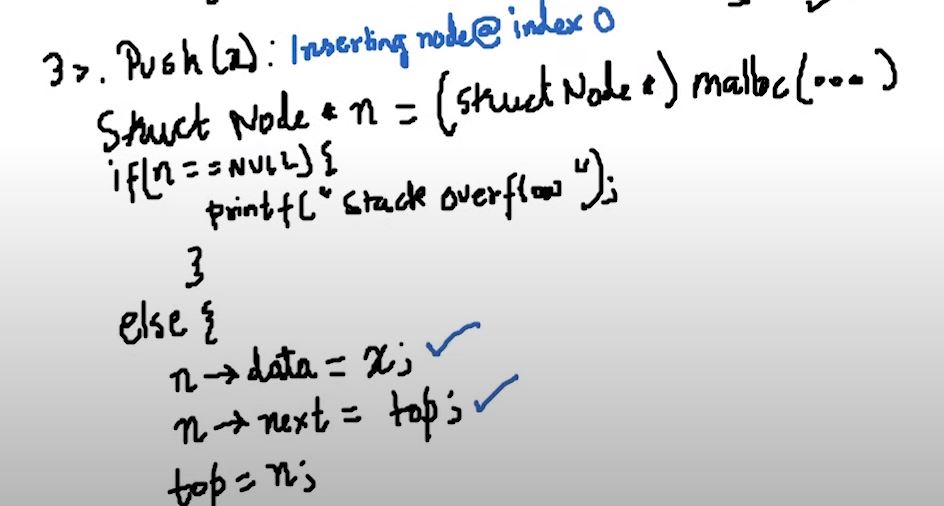 3>. Push(x): Inserting node@ index 0
Struct Node * n = (struct Node *) malloc(...)
if(n == NULL){
printf("Stack Overflow");
}
else {
n→data = x;
n→next = top;
top = n;